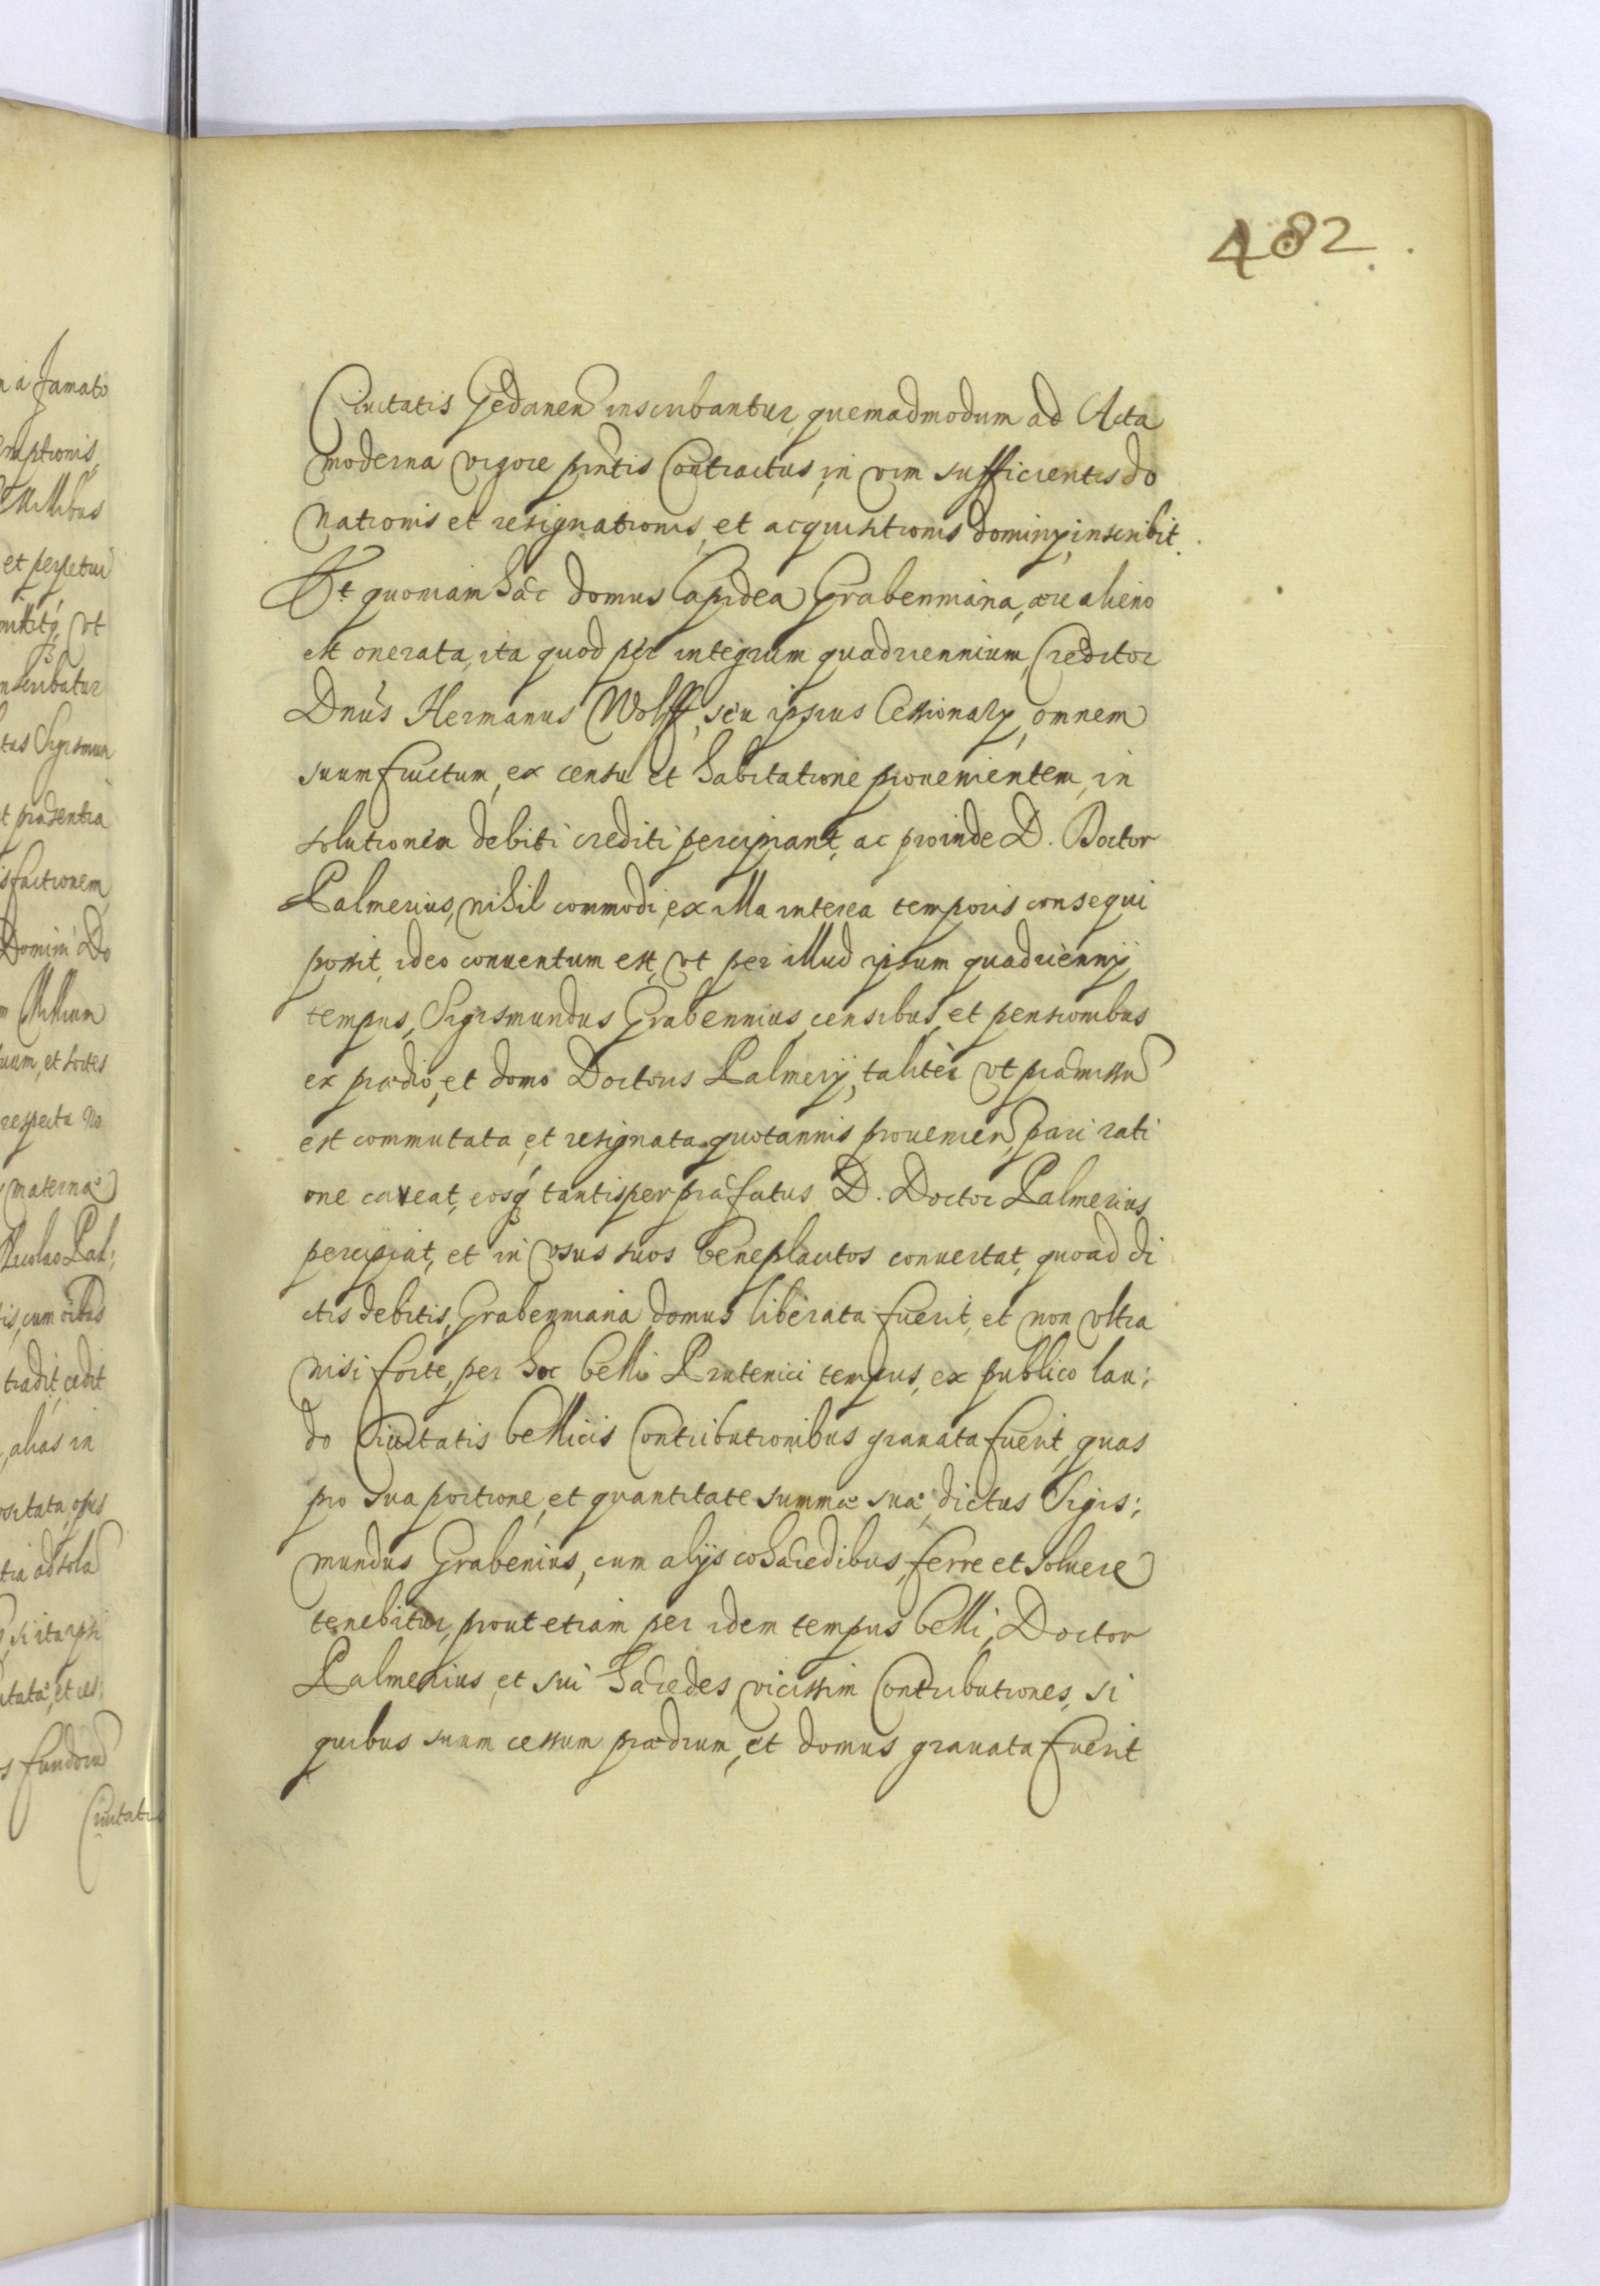 482.
Ciuitatis Gedanen inscribantur, quemadmodum ad Acta
moderna vigore pn̄tis Contractus, in vim sufficientis do
nationis et resignationis, et acquisitionis dominij, inscribit.
Et quoniam hæc domus lapidea Grabenniana, ære alieno
est onerata, ita quod per integrum quadriennium, Creditor
Dnus Hermanus Wolff, seu ipsius Cessionarij, omnem
suum fructum, ex censu et habitatione prouenientem, in
solutionem debiti crediti percipiant, ac proinde D. Doctor
Palmerius, nihil commodi, ex illa interea temporis consequi
possit, ideo conuentum est, vt per illud ipsum quadriennij
tempus, Sigismundus Grabennius, censibus, et pensionibus
ex prædio, et domo Doctoris Palmerij, taliter vt præmissu
est commutata, et resignata, quotannis prouenien, pari rati
one caveat, eosq tantisper præfatus D. Doctor Palmerius
percipiat, et in vsus suos beneplacitos conuertat, quoad di
ctis debitis, Grabenniana domus liberata fuerit, et non vltra
nisi forte, per hoc belli Prutenici tempus, ex publico lau:
do Ciuitatis bellicis Contributionibus grauata fuerit, quas
pro sua portione, et quantitate summæ suæ, dictus Sigis:
mundus Grabenius, cum alijs cohæredibus, ferre et soluere
tenebitur, prout etiam per idem tempus belli, Doctor
Palmerius, et sui hæredes, vicissim Contributiones, si
quibus suum cessum prædium, et domus grauata fuerit
a famato
emptionis,
Millibus
et perpetui
vt
inscribatur
Sigismun
præsentia
isfactionem
Domini Do
Millium
uum, et sortes
respectu No
maternæ
Nicolao Pal:
is, cum oĩbus
tradit, cedit
, alias in
opus
et ces:
s fundoru
Ciuitatis